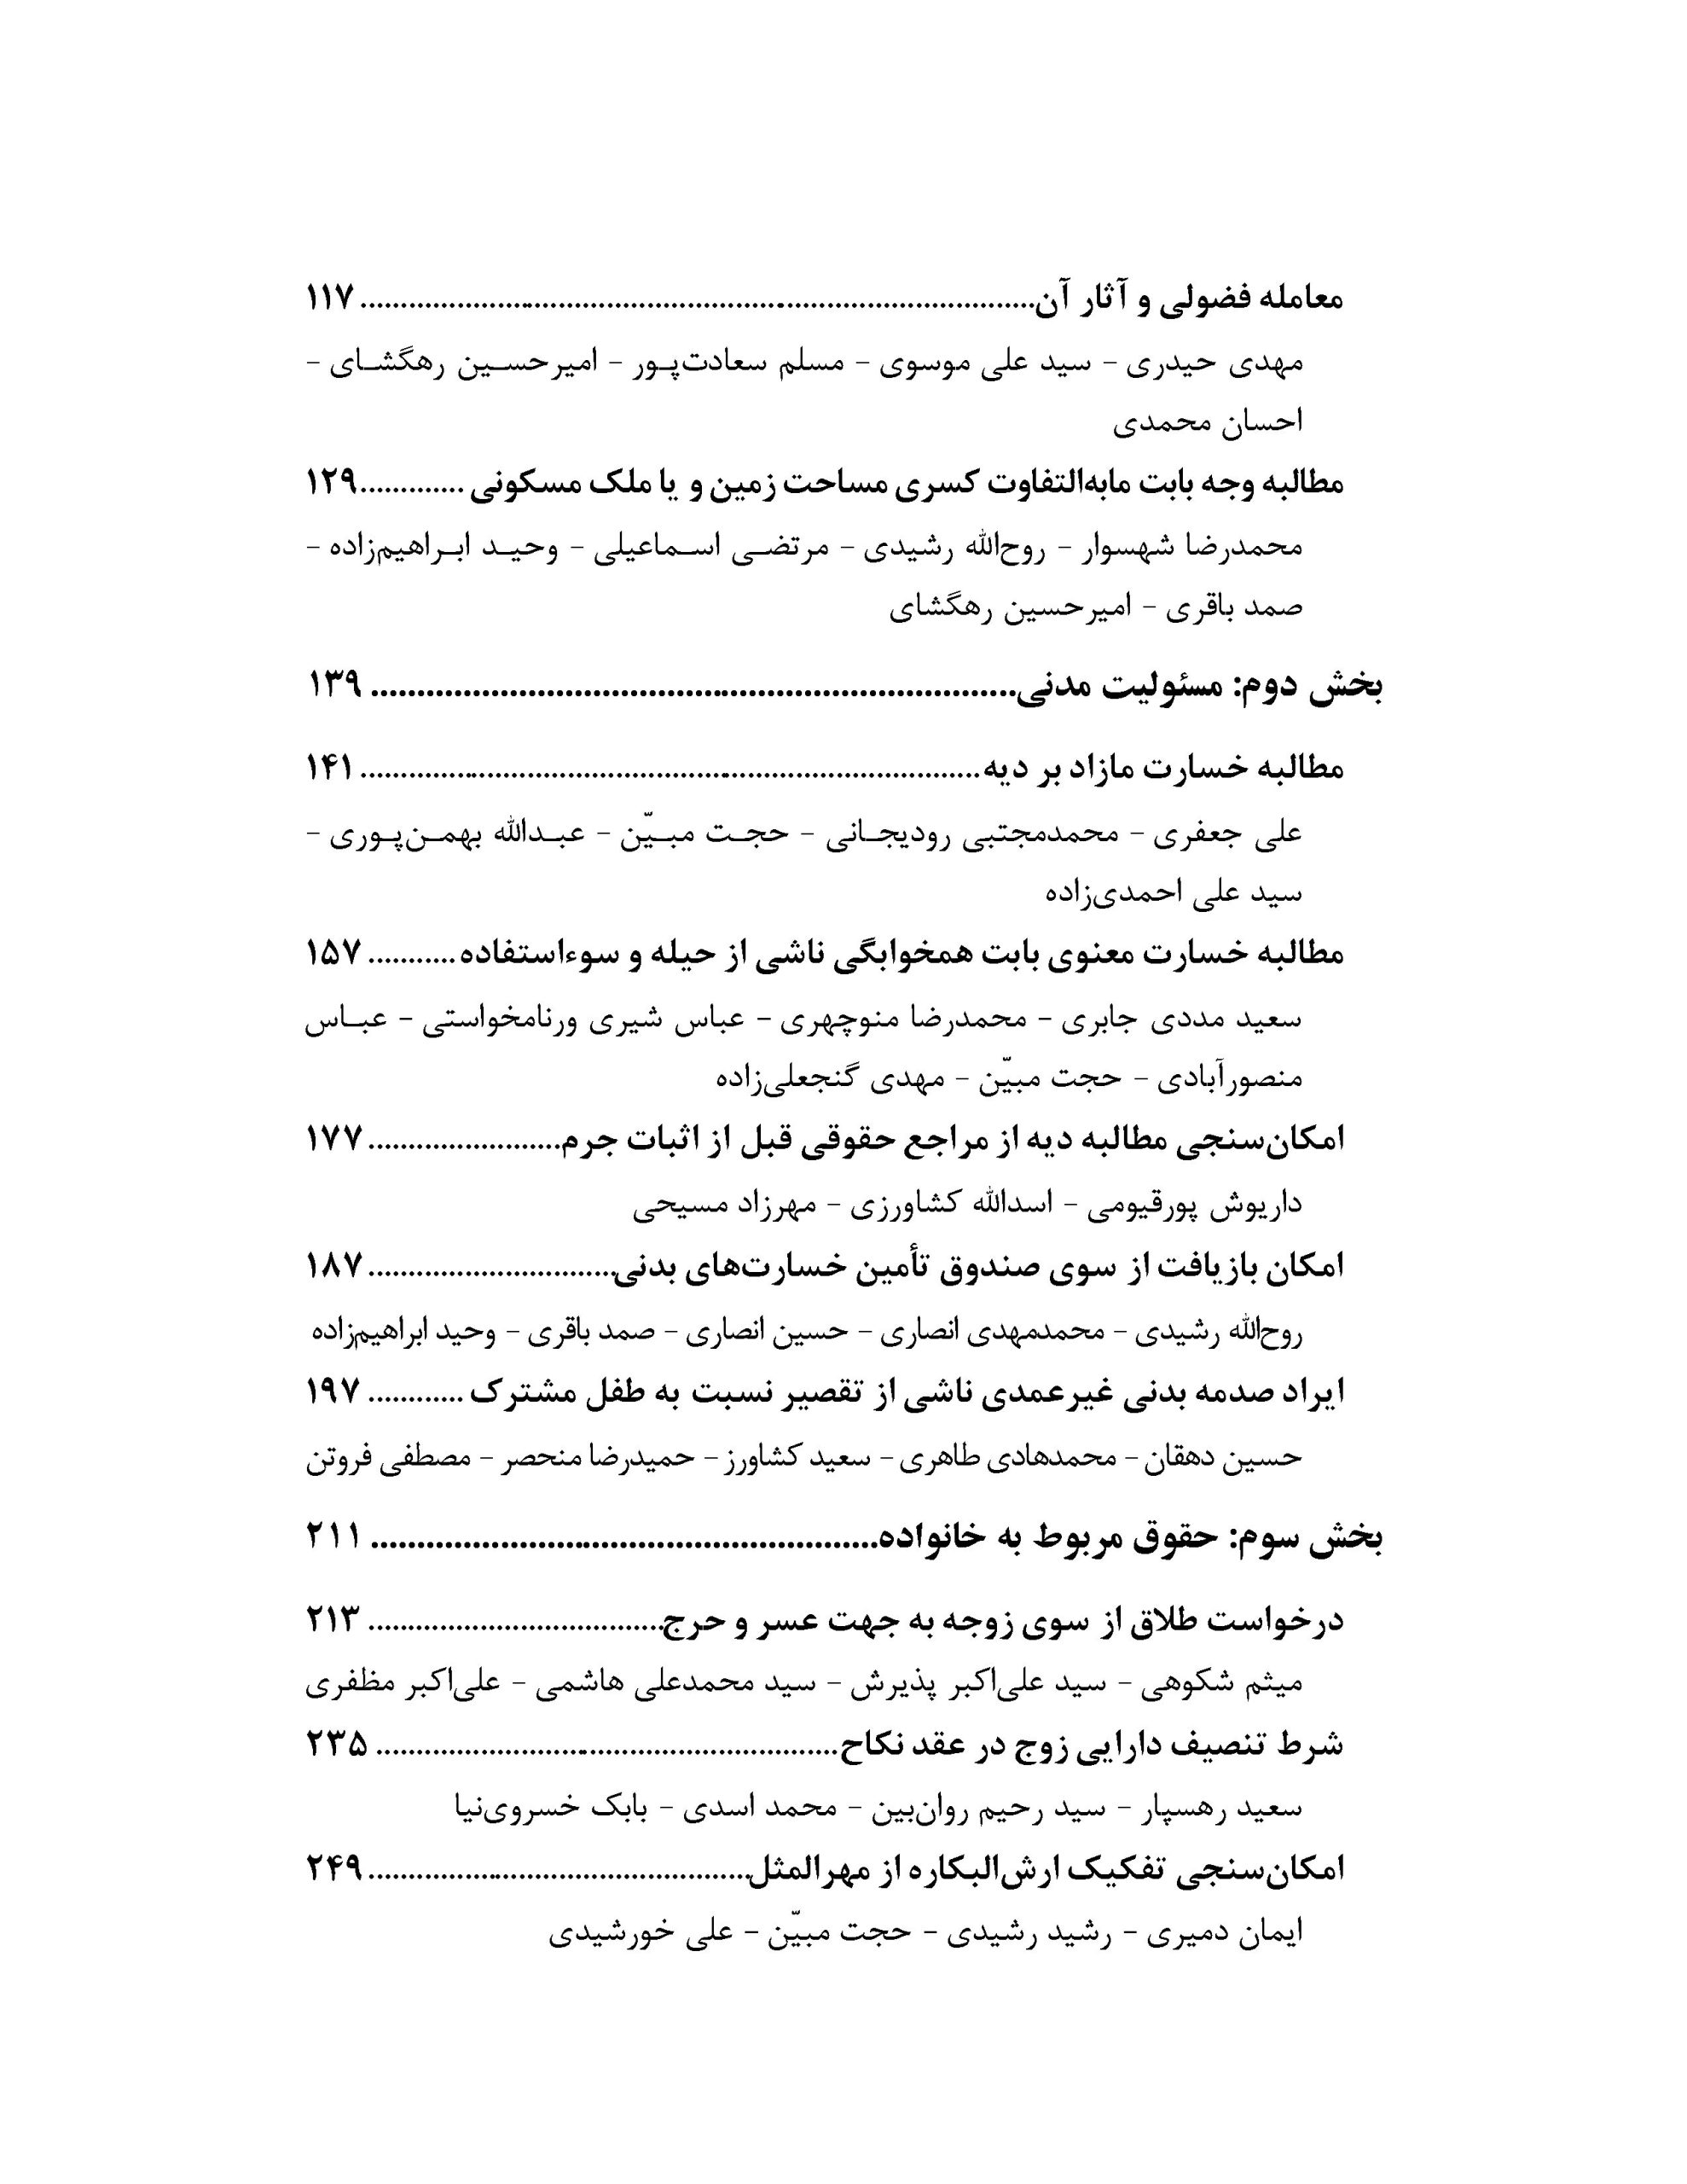 معامله فضولی و آثار آن.................................................................................... ۱۱۷
مهدی حیدری – سید علی موسوی – مسلم سعادت‌پـور – امیرحسـین رهگشـای –
احسان محمدی
مطالبه وجه بابت مابه‌التفاوت کسری مساحت زمین و یا ملک مسکونی .............۱۲۹
محمدرضا شهسوار – روح‌الله رشیدی – مرتضـی اسـماعیلی – وحیـد ابـراهیم‌زاده –
صمد باقری – امیرحسین رهگشای
بخش دوم: مسئولیت مدنی...................................................................... ۱۳۹
مطالبه خسارت مازاد بر دیه............................................................................. ۱۴۱
علی جعفری – محمدمجتبی رودیجـانی – حجـت مبـیّن – عبـدالله بهمـن‌پـوری –
سید علی احمدی‌زاده
مطالبه خسارت معنوی بابت همخوابگی ناشی از حیله و سوءاستفاده........... ۱۵۷
سعید مددی جابری – محمدرضا منوچهری – عباس شیری ورنامخواستی – عبـاس
منصورآبادی – حجت مبیّن – مهدی گنجعلی‌زاده
امکان‌سنجی مطالبه دیه از مراجع حقوقی قبل از اثبات جرم........................ ۱۷۷
داریوش پورقیومی – اسدالله کشاورزی – مهرزاد مسیحی
امکان بازیافت از سوی صندوق تأمین خسارت‌های بدنی............................... ۱۸۷
روح‌الله رشیدی – محمدمهدی انصاری – حسین انصاری – صمد باقری – وحید ابراهیم‌زاده
ایراد صدمه بدنی غیرعمدی ناشی از تقصیر نسبت به طفل مشترک ............ ۱۹۷
حسین دهقان – محمدهادی طاهری – سعید کشاورز – حمیدرضا منحصر – مصطفی فروتن
بخش سوم: حقوق مربوط به خانواده....................................................... ۲۱۱
درخواست طلاق از سوی زوجه به جهت عسر و حرج..................................... ۲۱۳
میثم شکوهی – سید علی‌اکبر پذیرش – سید محمدعلی هاشمی – علی‌اکبر مظفری
شرط تنصیف دارایی زوج در عقد نکاح......................................................... ۲۳۵
سعید رهسپار – سید رحیم روان‌بین – محمد اسدی – بابک خسروی‌نیا
امکان‌سنجی تفکیک ارش‌البکاره از مهرالمثل...............................................۲۴۹
ایمان دمیری – رشید رشیدی – حجت مبیّن – علی خورشیدی